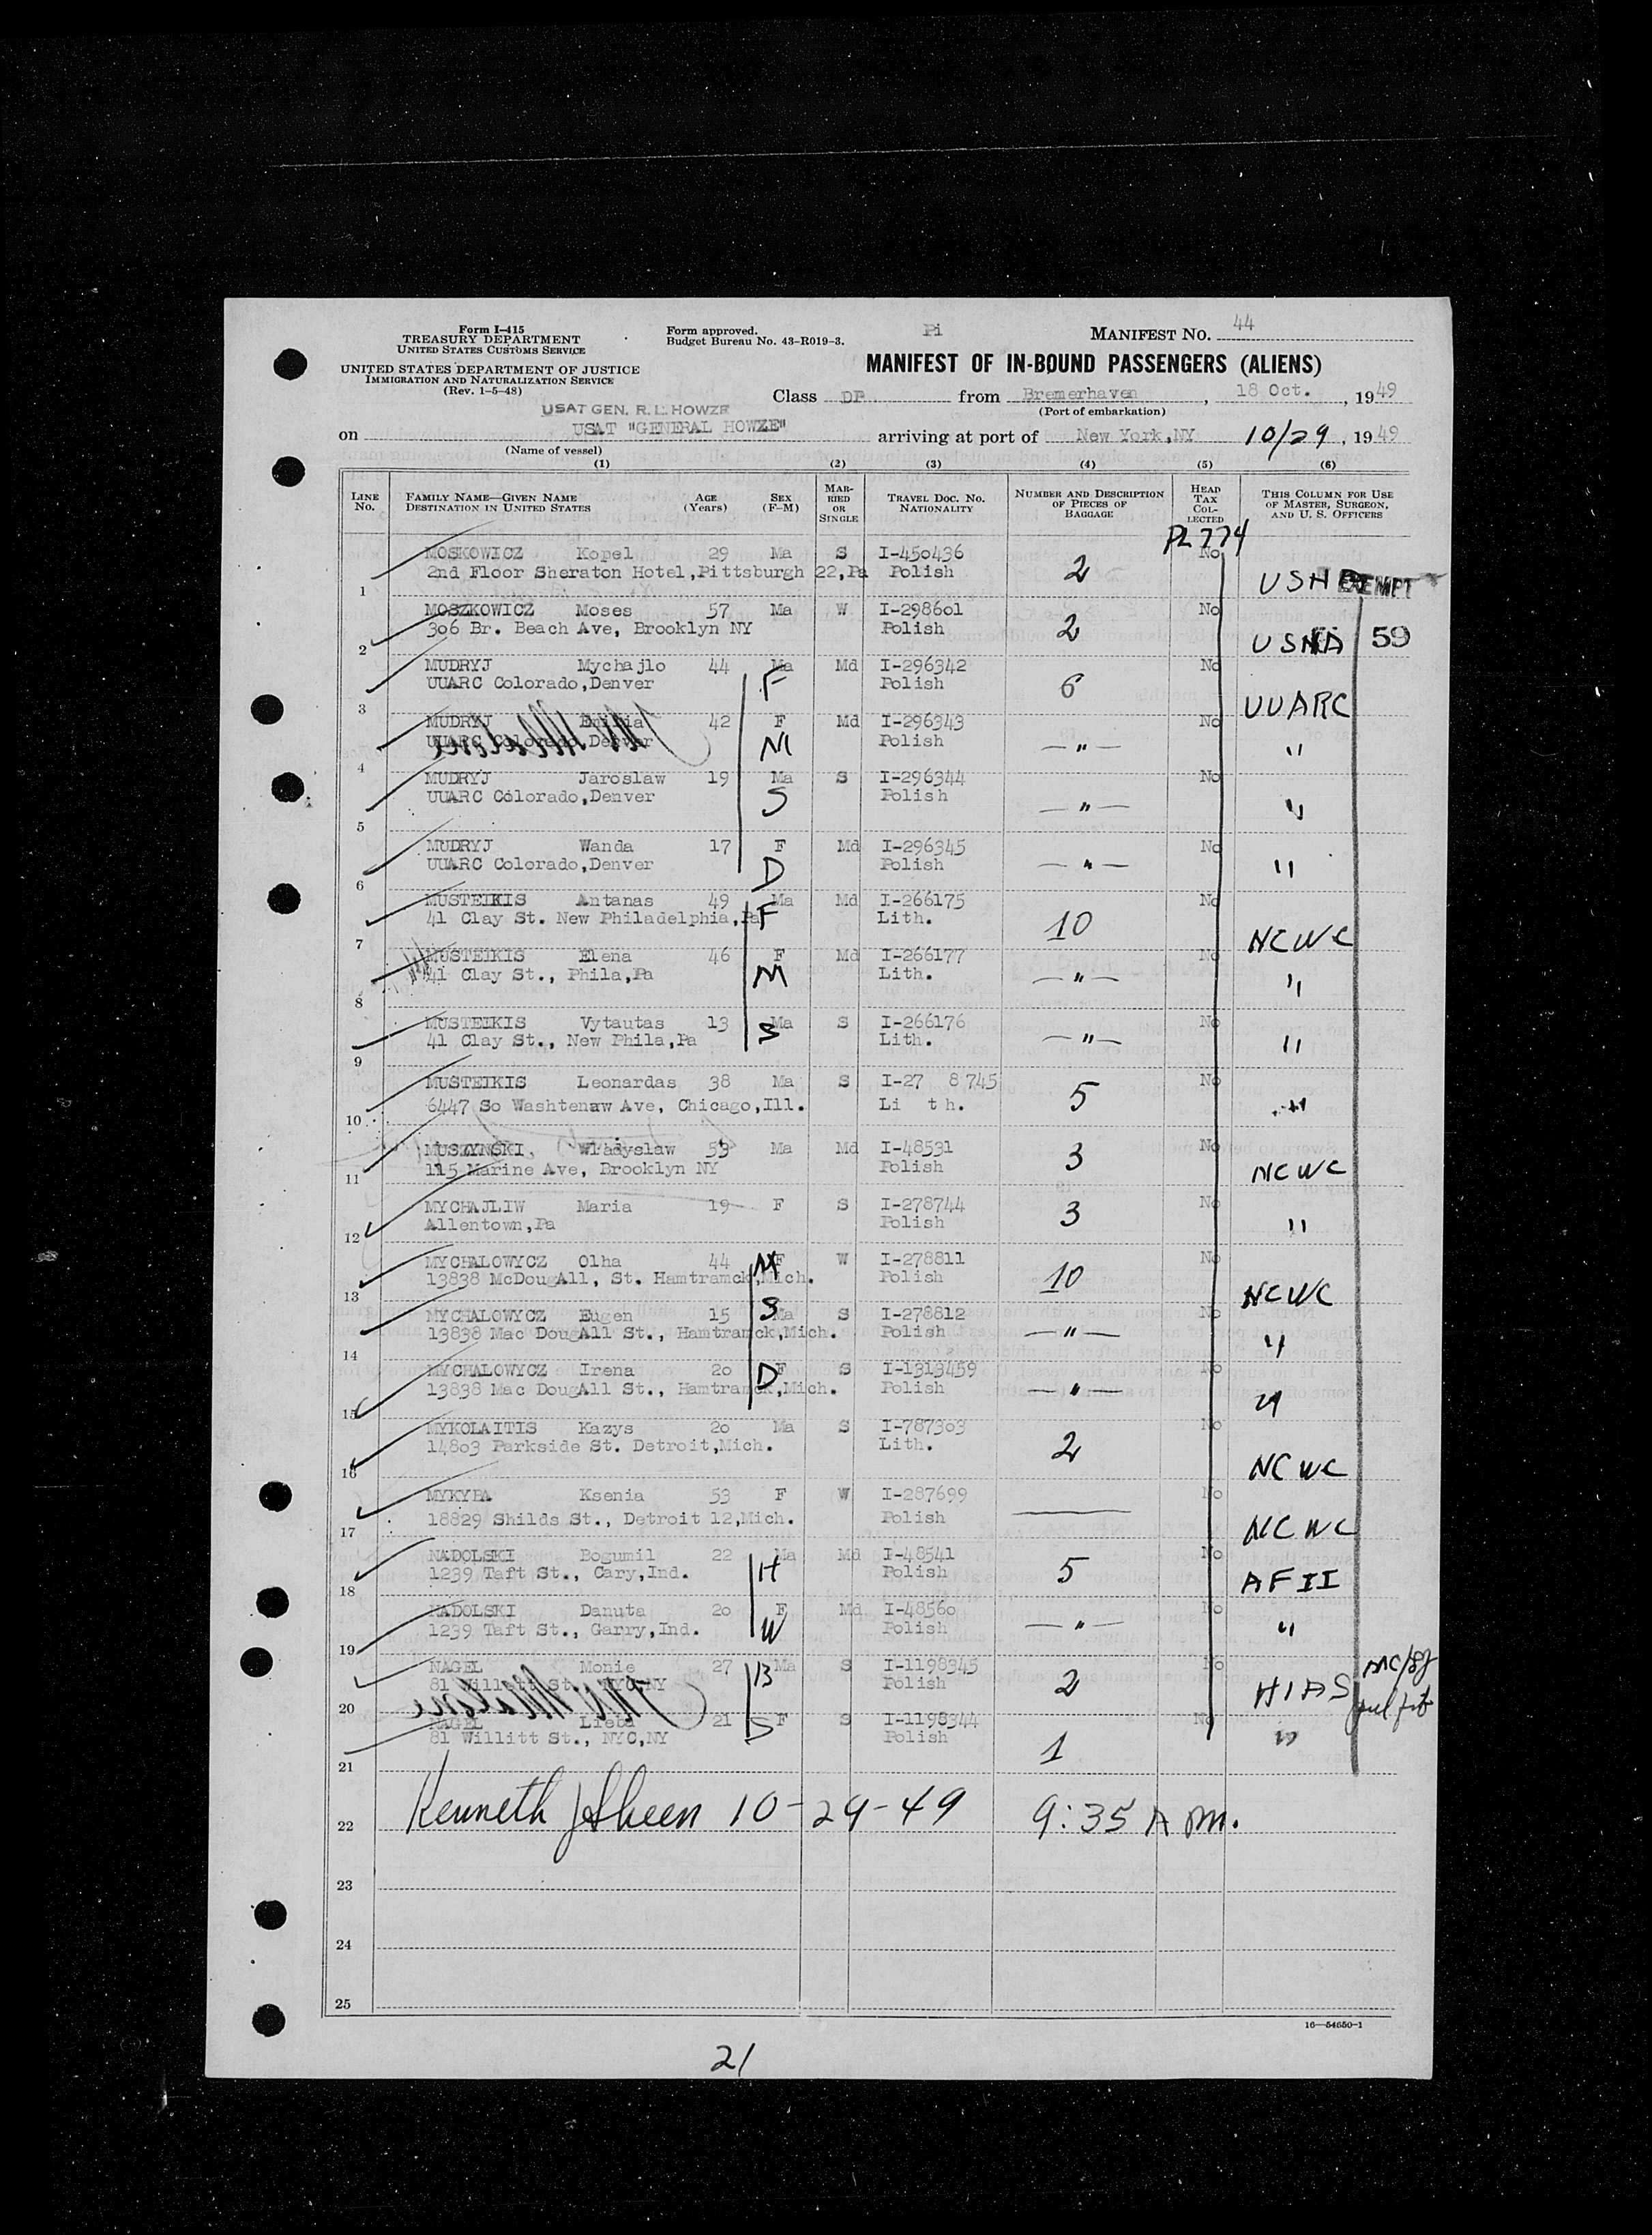 Form I-415
TREASURY DEPARTMENT
UNITED STATES CUSTOMS SERVICE
UNITED STATES DEPARTMENT OF JUSTICE
IMMIGRATION AND NATURALIZATION SERVICE
(Rev. 1-5-48)
Form approved.
Budget Bureau No. 43-R019-3.
Pi
MANIFEST NO. 44
MANIFEST OF IN-BOUND PASSENGERS (ALIENS)
Class DP from Bremerhaven, 18 Oct., 1949
(Port of embarkation)
USAT GEN. R.L. HOWZE
on USAT "GENERAL HOWZE" arriving at port of New York,NY 10/29, 1949
(Name of vessel)
(1) (2) (3) (4) (5) (6)
LINE NO. FAMILY NAME—GIVEN NAME DESTINATION IN UNITED STATES AGE (Years) SEX (F-M) MARRIED OR SINGLE TRAVEL DOC. NO. NATIONALITY NUMBER AND DESCRIPTION OF PIECES OF BAGGAGE HEAD TAX COLLECTED THIS COLUMN FOR USE OF MASTER, SURGEON, AND U. S. OFFICERS
PL 774
MOSKOWICZ Kopel 29 Ma S I-450436 2 No
1 2nd Floor Sheraton Hotel,Pittsburgh 22,Pa Polish USNA EXEMPT
MOSZKOWICZ Moses 57 Ma W I-298601 2 No
2 306 Br. Beach Ave, Brooklyn NY Polish USNA 59
MUDRYJ Mychajlo 44 Ma F Md I-296342 6 No
3 UUARC Colorado,Denver Polish UUARC
MUDRYJ Emilia 42 F M Md I-296343 — " — No
4 UUARC Colorado Denver Polish "
MUDRYJ Jaroslaw 19 Ma S S I-296344 — " — No
5 UUARC Colorado,Denver Polish "
MUDRYJ Wanda 17 F D Md I-296345 — " — No
6 UUARC Colorado,Denver Polish "
MUSTEIKIS Antanas 49 Ma F Md I-266175 10 No
7 41 Clay St. New Philadelphia,Pa Lith. NCWC
MUSTEIKIS Elena 46 F M Md I-266177 — " — No
8 41 Clay St., Phila,Pa Lith. "
MUSTEIKIS Vytautas 13 Ma S S I-266176 — " — No
9 41 Clay St., New Phila,Pa Lith. "
MUSTEIKIS Leonardas 38 Ma S I-27 8 745 5 No
10 6447 So Washtenaw Ave, Chicago,Ill. Li th. "
MUSZYNSKI, Wladyslaw 53 Ma Md I-48531 3 No
11 115 Marine Ave, Brooklyn NY Polish NCWC
MYCHAJLIW Maria 19 F S I-278744 3 No
12 Allentown,Pa Polish "
MYCHALOWYCZ Olha 44 F M W I-278811 10 No
13 13838 McDougAll, St. Hamtramck,Mich. Polish NCWC
MYCHALOWYCZ Eugen 15 Ma S S I-278812 — " — No
14 13838 Mac DougAll St., Hamtramck,Mich. Polish "
MYCHALOWYCZ Irena 20 F D S I-1313459 — " — No
15 13838 Mac DougAll St., Hamtramck,Mich. Polish "
MYKOLAITIS Kazys 20 Ma S I-787303 2 No
16 14803 Parkside St. Detroit,Mich. Lith. NCWC
MYKYBA Ksenia 53 F W I-287699 — No
17 18829 Shilds St., Detroit 12,Mich. Polish NCWC
NADOLSKI Bogumil 22 Ma H Md I-48541 5 No
18 1239 Taft St., Cary,Ind. Polish AFII
NADOLSKI Danuta 20 F W Md I-48560 — " — No
19 1239 Taft St., Garry,Ind. Polish "
NAGEL Monie 27 Ma B S I-1198345 2 No
20 81 Willitt St. NYC,NY Polish HIAS
NAGEL Lieba 21 F S S I-1198344 1 No
21 81 Willitt St., NYC,NY Polish "
22 Kenneth J Sheen 10-29-49 9:35 A M.
23
24
25
16—54650-1
21